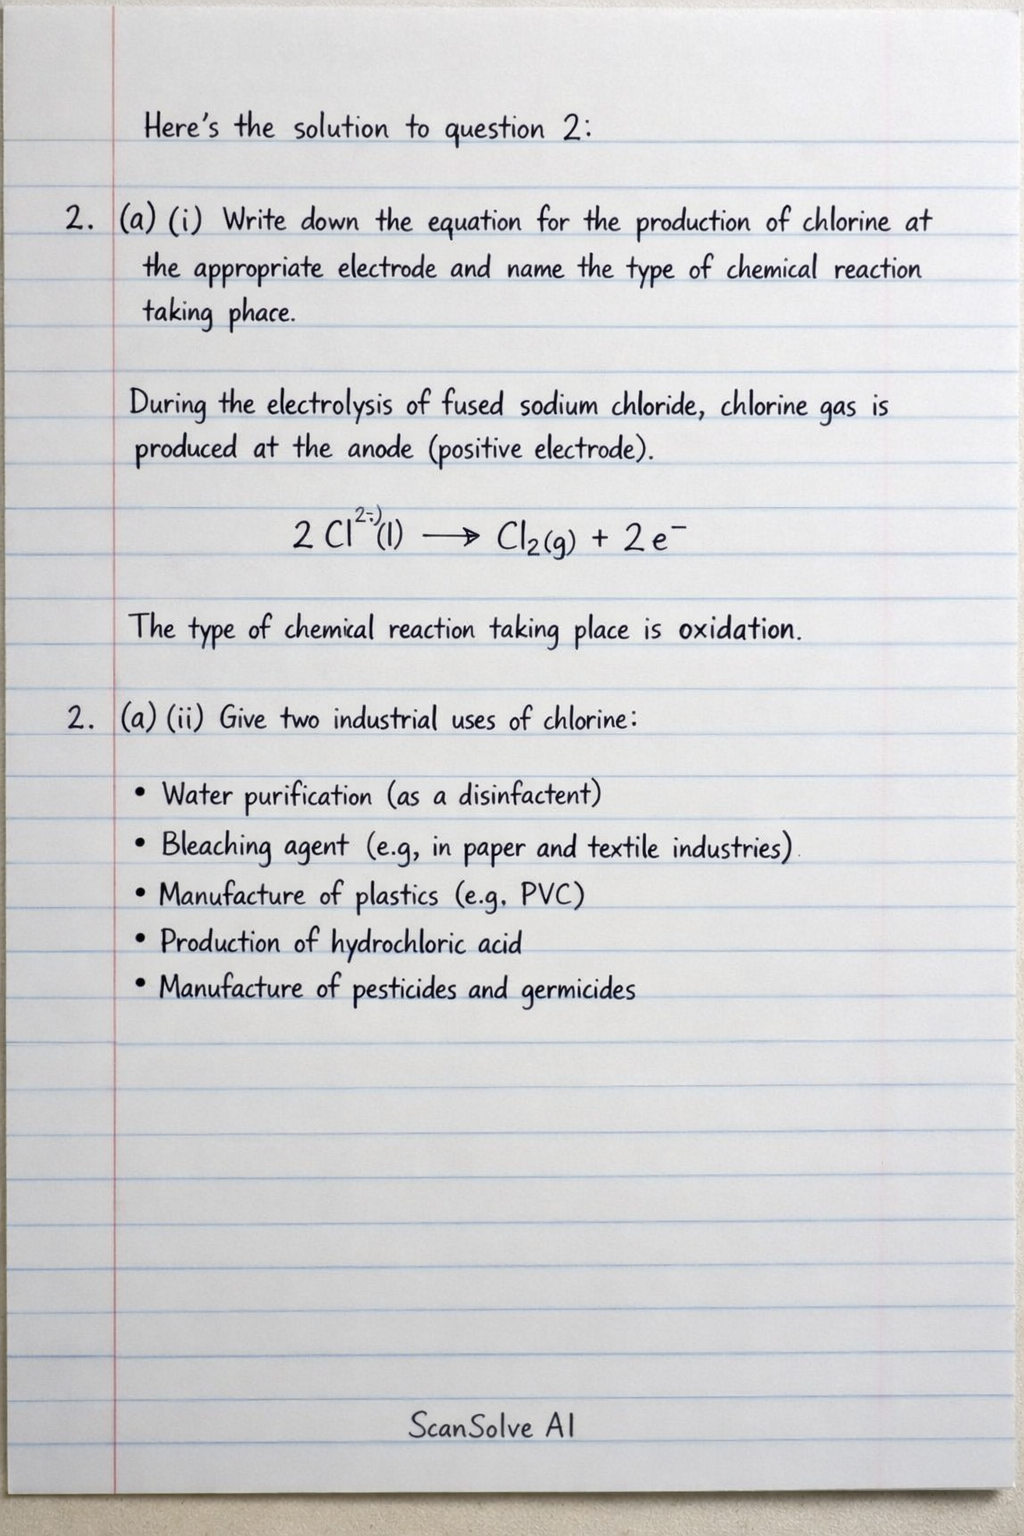 Here's the solution to question 2:
2. (a) (i) Write down the equation for the production of chlorine at
the appropriate electrode and name the type of chemical reaction
taking phace.
During the electrolysis of fused sodium chloride, chlorine gas is
produced at the anode (positive electrode).
2 Cl²⁻⁾(l) ⟶ Cl₂(g) + 2e⁻
The type of chemical reaction taking place is oxidation.
2. (a) (ii) Give two industrial uses of chlorine:
• Water purification (as a disinfactent)
• Bleaching agent (e.g, in paper and textile industries)
• Manufacture of plastics (e.g. PVC)
• Production of hydrochloric acid
• Manufacture of pesticides and germicides
ScanSolve AI